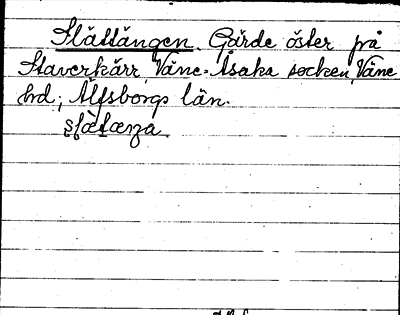 Slättängen. Gärde öster på
Staverkärr, Väne-Åsaka socken, Väne
hrd; Älfsborgs län.